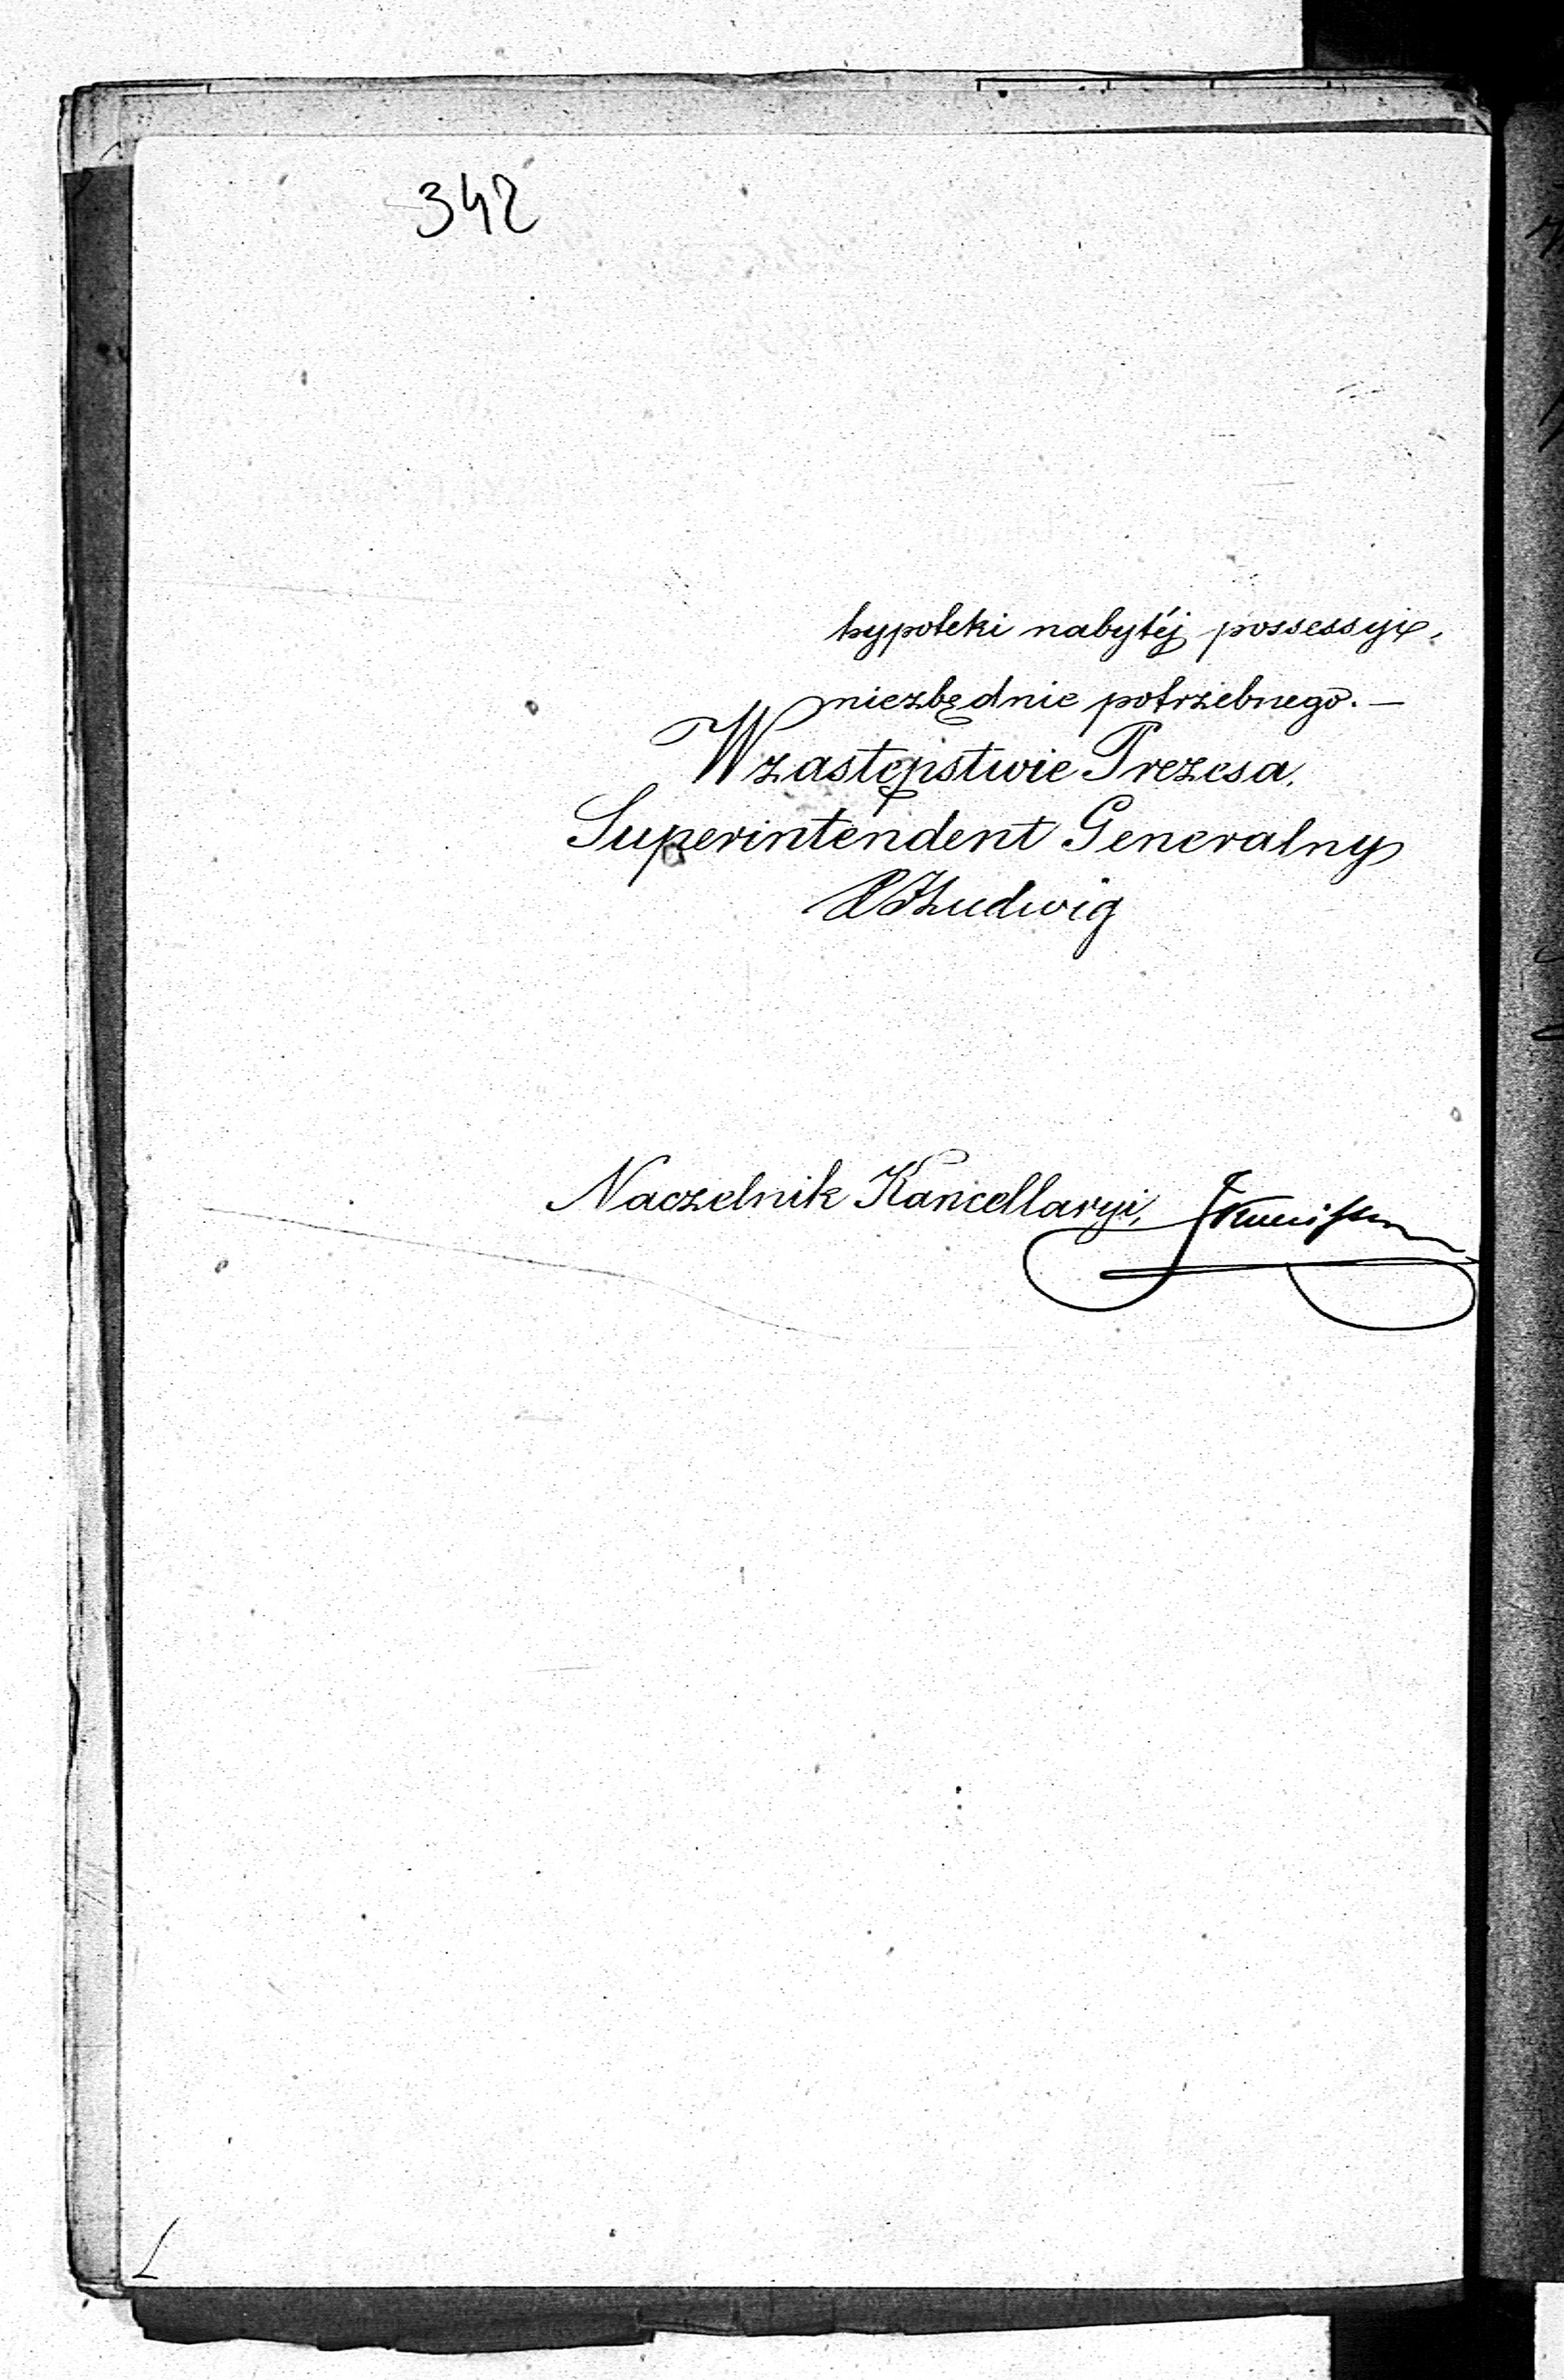 342
hypoteki nabytéj possessyi,
niezbędnie potrzebnego. —
W zastępstwie Prezesa,
Superintendent Generalny
Ludwig
Naczelnik Kancellaryi,